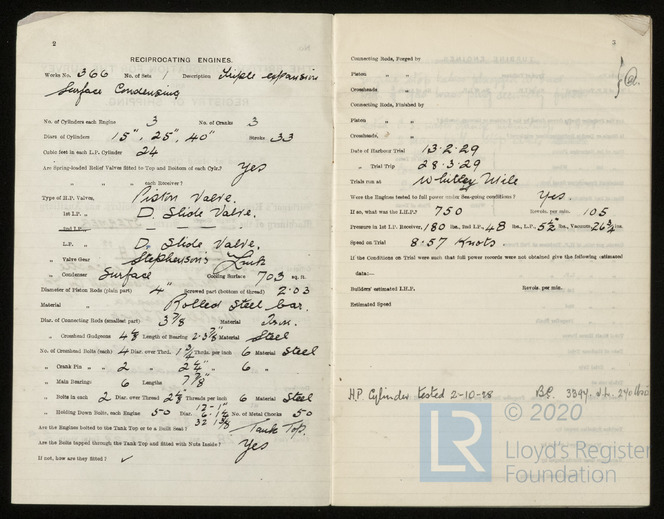 2
RECIPROCATING ENGINES.
Works No. 366 No. of Sets 1 Description Triple expansion
Surface Condensing
No. of Cylinders each Engine 3 No. of Cranks 3
Diars of Cylinders 15", 25", 40" Stroke 33
Cubic feet in each L.P. Cylinder 24
Are Spring-loaded Relief Valves fitted to Top and Bottom of each Cylr.? Yes
" " " each Receiver?
Type of H.P. Valves, Piston Valve.
1st L.P. " D. Slide Valve.
2nd L.P. " — —
L.P. " D. Slide Valve.
" Valve Gear Stephenson's Link
" Condenser Surface Cooling Surface 703 sq. ft.
Diameter of Piston Rods (plain part) 4" Screwed part (bottom of thread) 2.03
Material " Rolled Steel bar.
Diar. of Connecting Rods (smallest part) 3 7/8 Material Iron.
" Crosshead Gudgeons 4 1/8 Length of Bearing Material Steel
No. of Crosshead Bolts (each) 4 Diar. over Thrd. 1 3/4 Thrds. per inch 6 Material Steel
" Crank Pin " 2 " 2 1/4" " 6 "
" Main Bearings 6 Lengths 7 7/8"
" Bolts in each 2 Diar. over Thread 2 1/8 Threads per inch 6 Material Steel
" Holding Down Bolts, each Engine 50 Diar. 12 - 1" 6 - 1 1/8 32 1 3/8 No. of Metal Chocks 50
Are the Engines bolted to the Tank Top or to a Built Seat? Tank Top.
Are the Bolts tapped through the Tank Top and fitted with Nuts Inside? Yes
If not, how are they fitted? ✓
3
Connecting Rods, Forged by
Piston " "
Crossheads "
Connecting Rods, Finished by
Piston " "
Crossheads, "
Date of Harbour Trial 13.2.29
" Trial Trip 28.3.29
Trials run at Whitley Mile
Were the Engines tested to full power under Sea-going conditions? Yes.
If so, what was the I.H.P.? 750 Revols. per min. 105
Pressure in 1st L.P. Receiver, 180 lbs., 2nd L.P., 48 lbs., L.P., 5 1/2 lbs., Vacuum 26 3/4 ins.
Speed on Trial 8.57 Knots.
If the Conditions on Trial were such that full power records were not obtained give the following estimated
data:—
Builders' estimated I.H.P. Revols. per min.
Estimated Speed
H.P. Cylinder tested 2-10-28
© 2020
LR
Lloyd's Register
Foundation